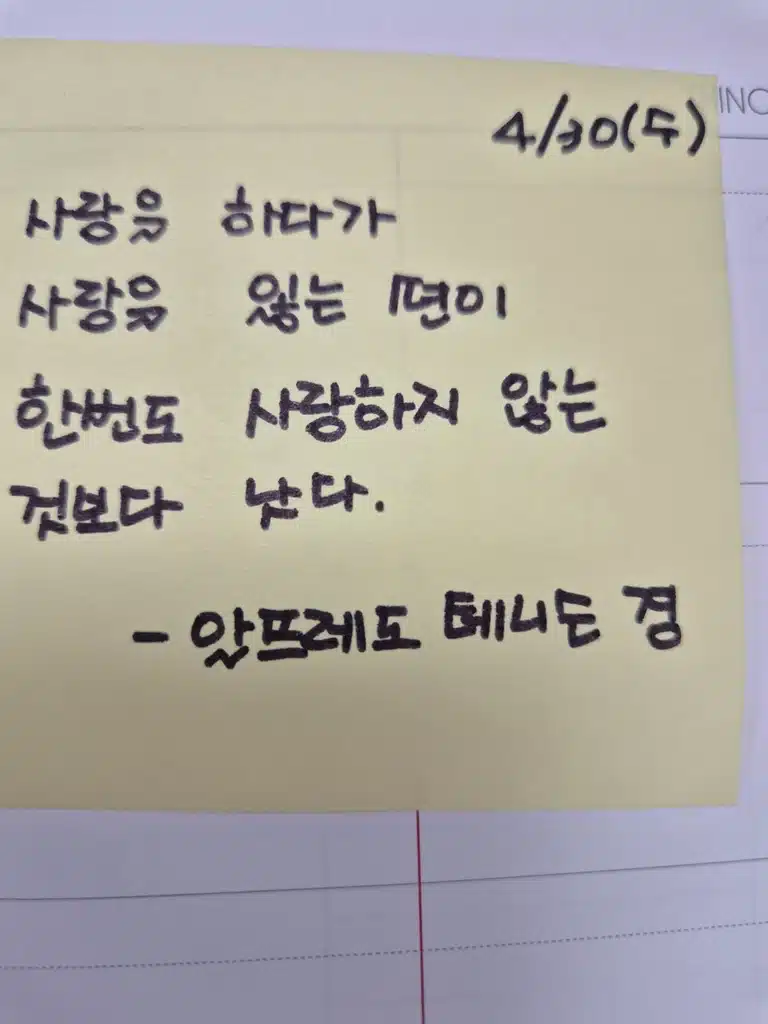 4/30(수)
사랑을 하다가
사랑을 잃는 편이
한번도 사랑하지 않는
것보다 낫다.
- 알프레도 테니슨 경